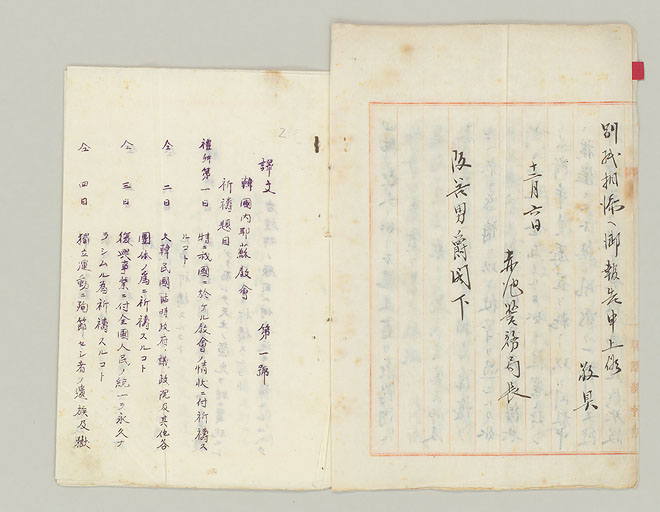 別紙相添ヘ御報告申上候
敬具
十二月六日
赤池警務局長
阪谷男爵閣下
譯文
韓國内耶蘇敎會 第一號
祈禱題目
禮拜第一日 特ニ我國ニ於ケル敎會ノ情状ニ付祈禱ス
ルコト
仝 二日 大韓民國臨時政府議政院及其他各
團体ノ爲ニ祈禱スルコト
仝 三日 復興事業ニ付全國人民ノ統一ヲ永久ナ
ラシムル爲祈禱スルコト
仝 四日 獨立運動ニ殉節セシ者ノ遺族及獄